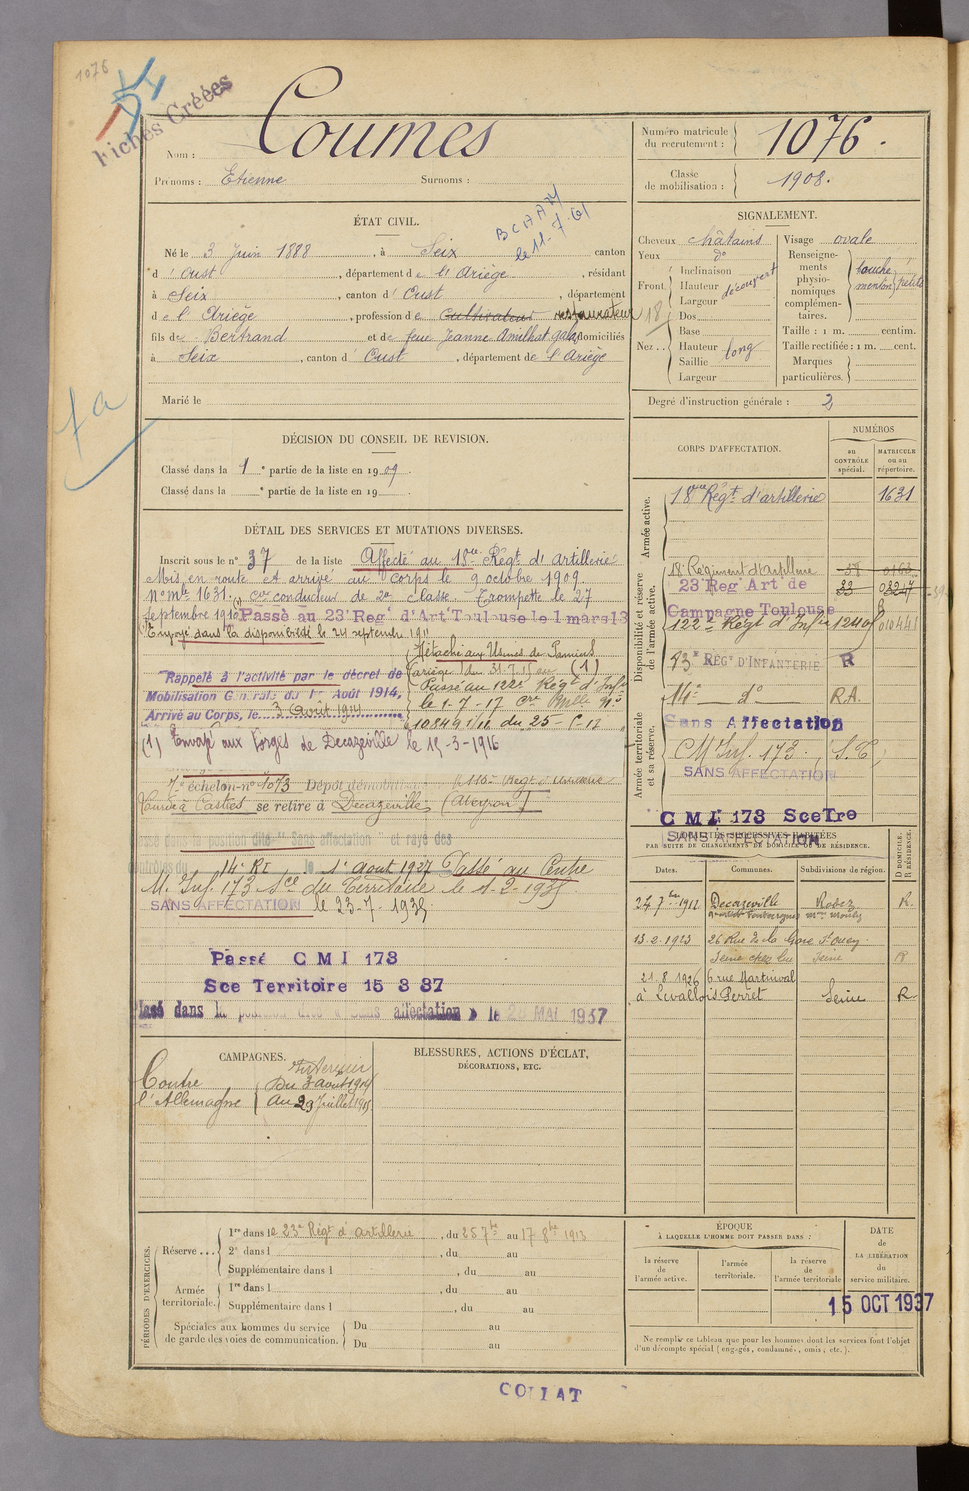 1076
Fichés Créées
Nom : Coumes
Prénoms : Etienne Surnoms :
Numéro matricule du recrutement : 1076.
Classe de mobilisation : 1908.
ÉTAT CIVIL.
BCAAM
le 11.7.61
Né le 3 Juin 1888, à Seix canton
d'Oust, département de l'Ariège, résidant
à Seix, canton d'Oust, département
de l'Ariège, profession de Cultivateur restaurateur
fils de Bertrand et de feue Jeanne Amilhat Gala, domiciliés
à Seix, canton d'Oust, département de l'Ariège
Marié le
SIGNALEMENT.
Cheveux châtains
Yeux do
Front. Inclinaison
Hauteur
Largeur
découvert
Nez... Dos
Base
Hauteur
Saillie
Largeur
long
Visage ovale
Renseignements physionomiques complémentaires.
bouche
menton petits
Taille : 1 m. centim.
Taille rectifiée : 1 m. cent.
Marques particulières.
Degré d'instruction générale : 2
DÉCISION DU CONSEIL DE REVISION.
Classé dans la 1e partie de la liste en 1909.
Classé dans la e partie de la liste en 19
DÉTAIL DES SERVICES ET MUTATIONS DIVERSES.
Inscrit sous le n° 37 de la liste Affecté au 18me Régt d'Artillerie
Mis en route et arrivé au corps le 9 octobre 1909.
No Mle 1631. con conducteur de 2e classe. Trompette le 27
septembre 1910 Passé au 23e Reg d'Art Toulouse le 1 mars 13
Envoyé dans la disponibilité le 24 septembre 1911
Détaché aux Usines de Pamiers
(Ariège) du 31.7.15 (1)
"Rappelé à l'activité par le décret de
Mobilisation Générale du 1er Août 1914,
Arrivé au Corps, le 3 Août 1914
Passé au 122e Régt d'Infie
le 1-7-17
(1) Envoyé aux Forges de Decazeville le 15-3-1916
7e échelon-n° 1073 Dépôt démobilisateur
Castres se retire à Decazeville (Aveyron)
Passé dans la position dite "Sans affectation" et rayé des
contrôles du 14e RI le 1er août 1927 Passé au Centre
M. Inf. 173 Sce du Territoire le 1-2-1935
SANS AFFECTATION le 23-7-1935
Passé C M I 173
Sce Territoire 15 3 37
Placé dans la position dite "Sans affectation" le 28 MAI 1937
CORPS D'AFFECTATION.
NUMÉROS
au CONTRÔLE spécial.
MATRICULE ou au répertoire.
Armée active.
18me Régt d'artillerie 1631
Disponibilité et réserve de l'armée active.
18e Régiment d'artillerie
23 Reg Art de
Campagne Toulouse
122e Régt d'Infie
93e RÉGT D'INFANTERIE R
Armée territoriale et sa réserve.
14e do R.A.
Sans Affectation
CM Inf. 173 (S.T.)
SANS AFFECTATION
CMI 173 SceTre
SANS AFFECTATION
LOCALITÉS SUCCESSIVES HABITÉES
PAR SUITE DE CHANGEMENTS DE DOMICILE OU DE RÉSIDENCE.
Dates. Communes. Subdivisions de région. D DOMICILE. R RÉSIDENCE.
27 7bre 1912 Decazeville Rodez R.
13-2-1923 26 Rue de la Gare St Ouen.
Seine R
21.8.1926 6 rue Martinval
à Levallois Perret Seine R
CAMPAGNES.
Contre l'Allemagne
Intérieur
Du 3 août 1914
Au 29 Juillet 1915
BLESSURES, ACTIONS D'ÉCLAT,
DÉCORATIONS, ETC.
PÉRIODES D'EXERCICES.
Réserve... 1re dans le 23e Régt d'artillerie, du 25 7bre au 17 8bre 1913
2e dans l , du au
Supplémentaire dans l , du au
Armée territoriale. 1re dans l , du au
Supplémentaire dans l , du au
Spéciales aux hommes du service de garde des voies de communication.
Du au
Du au
ÉPOQUE
À LAQUELLE L'HOMME DOIT PASSER DANS :
la réserve de l'armée active.
l'armée territoriale.
la réserve de l'armée territoriale
DATE de LA LIBÉRATION du service militaire.
15 OCT 1937
Ne remplir ce tableau que pour les hommes dont les services font l'objet
d'un décompte spécial (engagés, condamnés, omis, etc.).
COLLAT